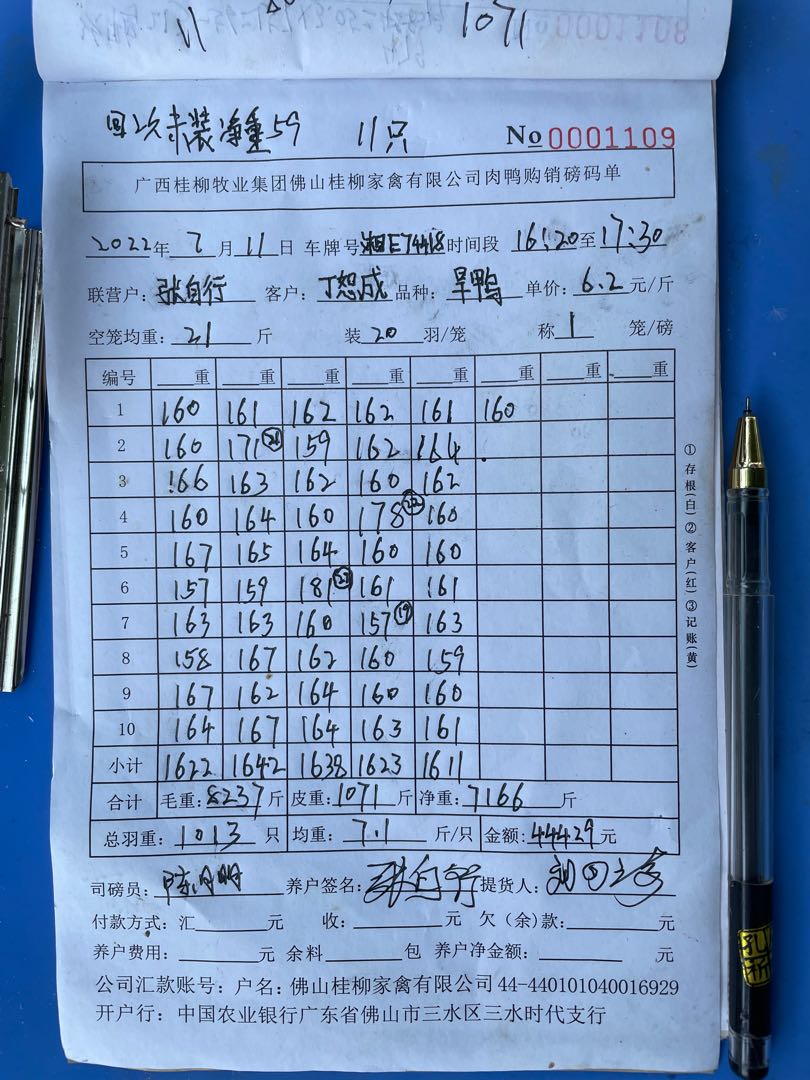 1071
回次未装净重59 11只 No 0001109
广西桂柳牧业集团佛山桂柳家禽有限公司肉鸭购销磅码单
2022年 7月 11日 车牌号 湘E74418 时间段 16:20至17:30
联营户: 张自行 客户: 丁恕成 品种: 旱鸭 单价: 6.2 元/斤
空笼均重: 21 斤 装 20 羽/笼 称 1 笼/磅
编号 重 重 重 重 重 重 重 重
1 160 161 162 162 161 160
2 160 171 (21) 159 162 164
3 166 163 162 160 162
4 160 164 160 178 (22) 160
5 167 165 164 160 160
6 157 159 181 (22) 161 161
7 163 163 160 157 (19) 163
8 158 167 162 160 159
9 167 162 164 160 160
10 164 167 164 163 161
小计 1622 1642 1638 1623 1611
合计 毛重: 8237 斤 皮重: 1071 斤 净重: 7166 斤
总羽重: 1013 只 均重: 7.1 斤/只 金额: 44429 元
司磅员: 养户签名: 张自行 提货人:
付款方式: 汇 元 收: 元 欠(余)款: 元
养户费用: 元 余料 包 养户净金额: 元
公司汇款账号: 户名: 佛山桂柳家禽有限公司 44-440101040016929
开户行: 中国农业银行广东省佛山市三水区三水时代支行
①存根(白)②客户(红)③记账(黄)